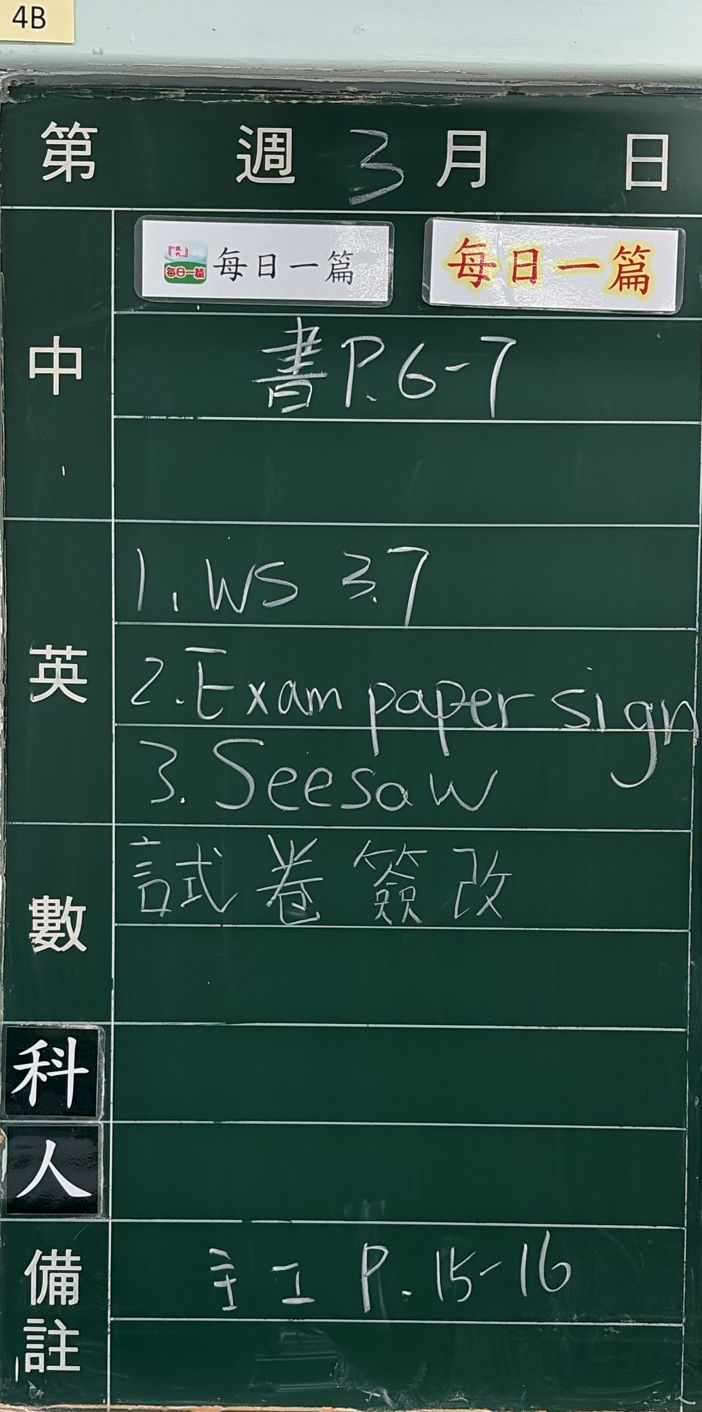 4B
第 週 3 月 日
中
每日一篇 每日一篇 每日一篇
書P.6-7
英
1. WS 3.7
2. Exam paper sign
3. Seesaw
數
試卷簽改
科
人
備註
主工 P. 15-16